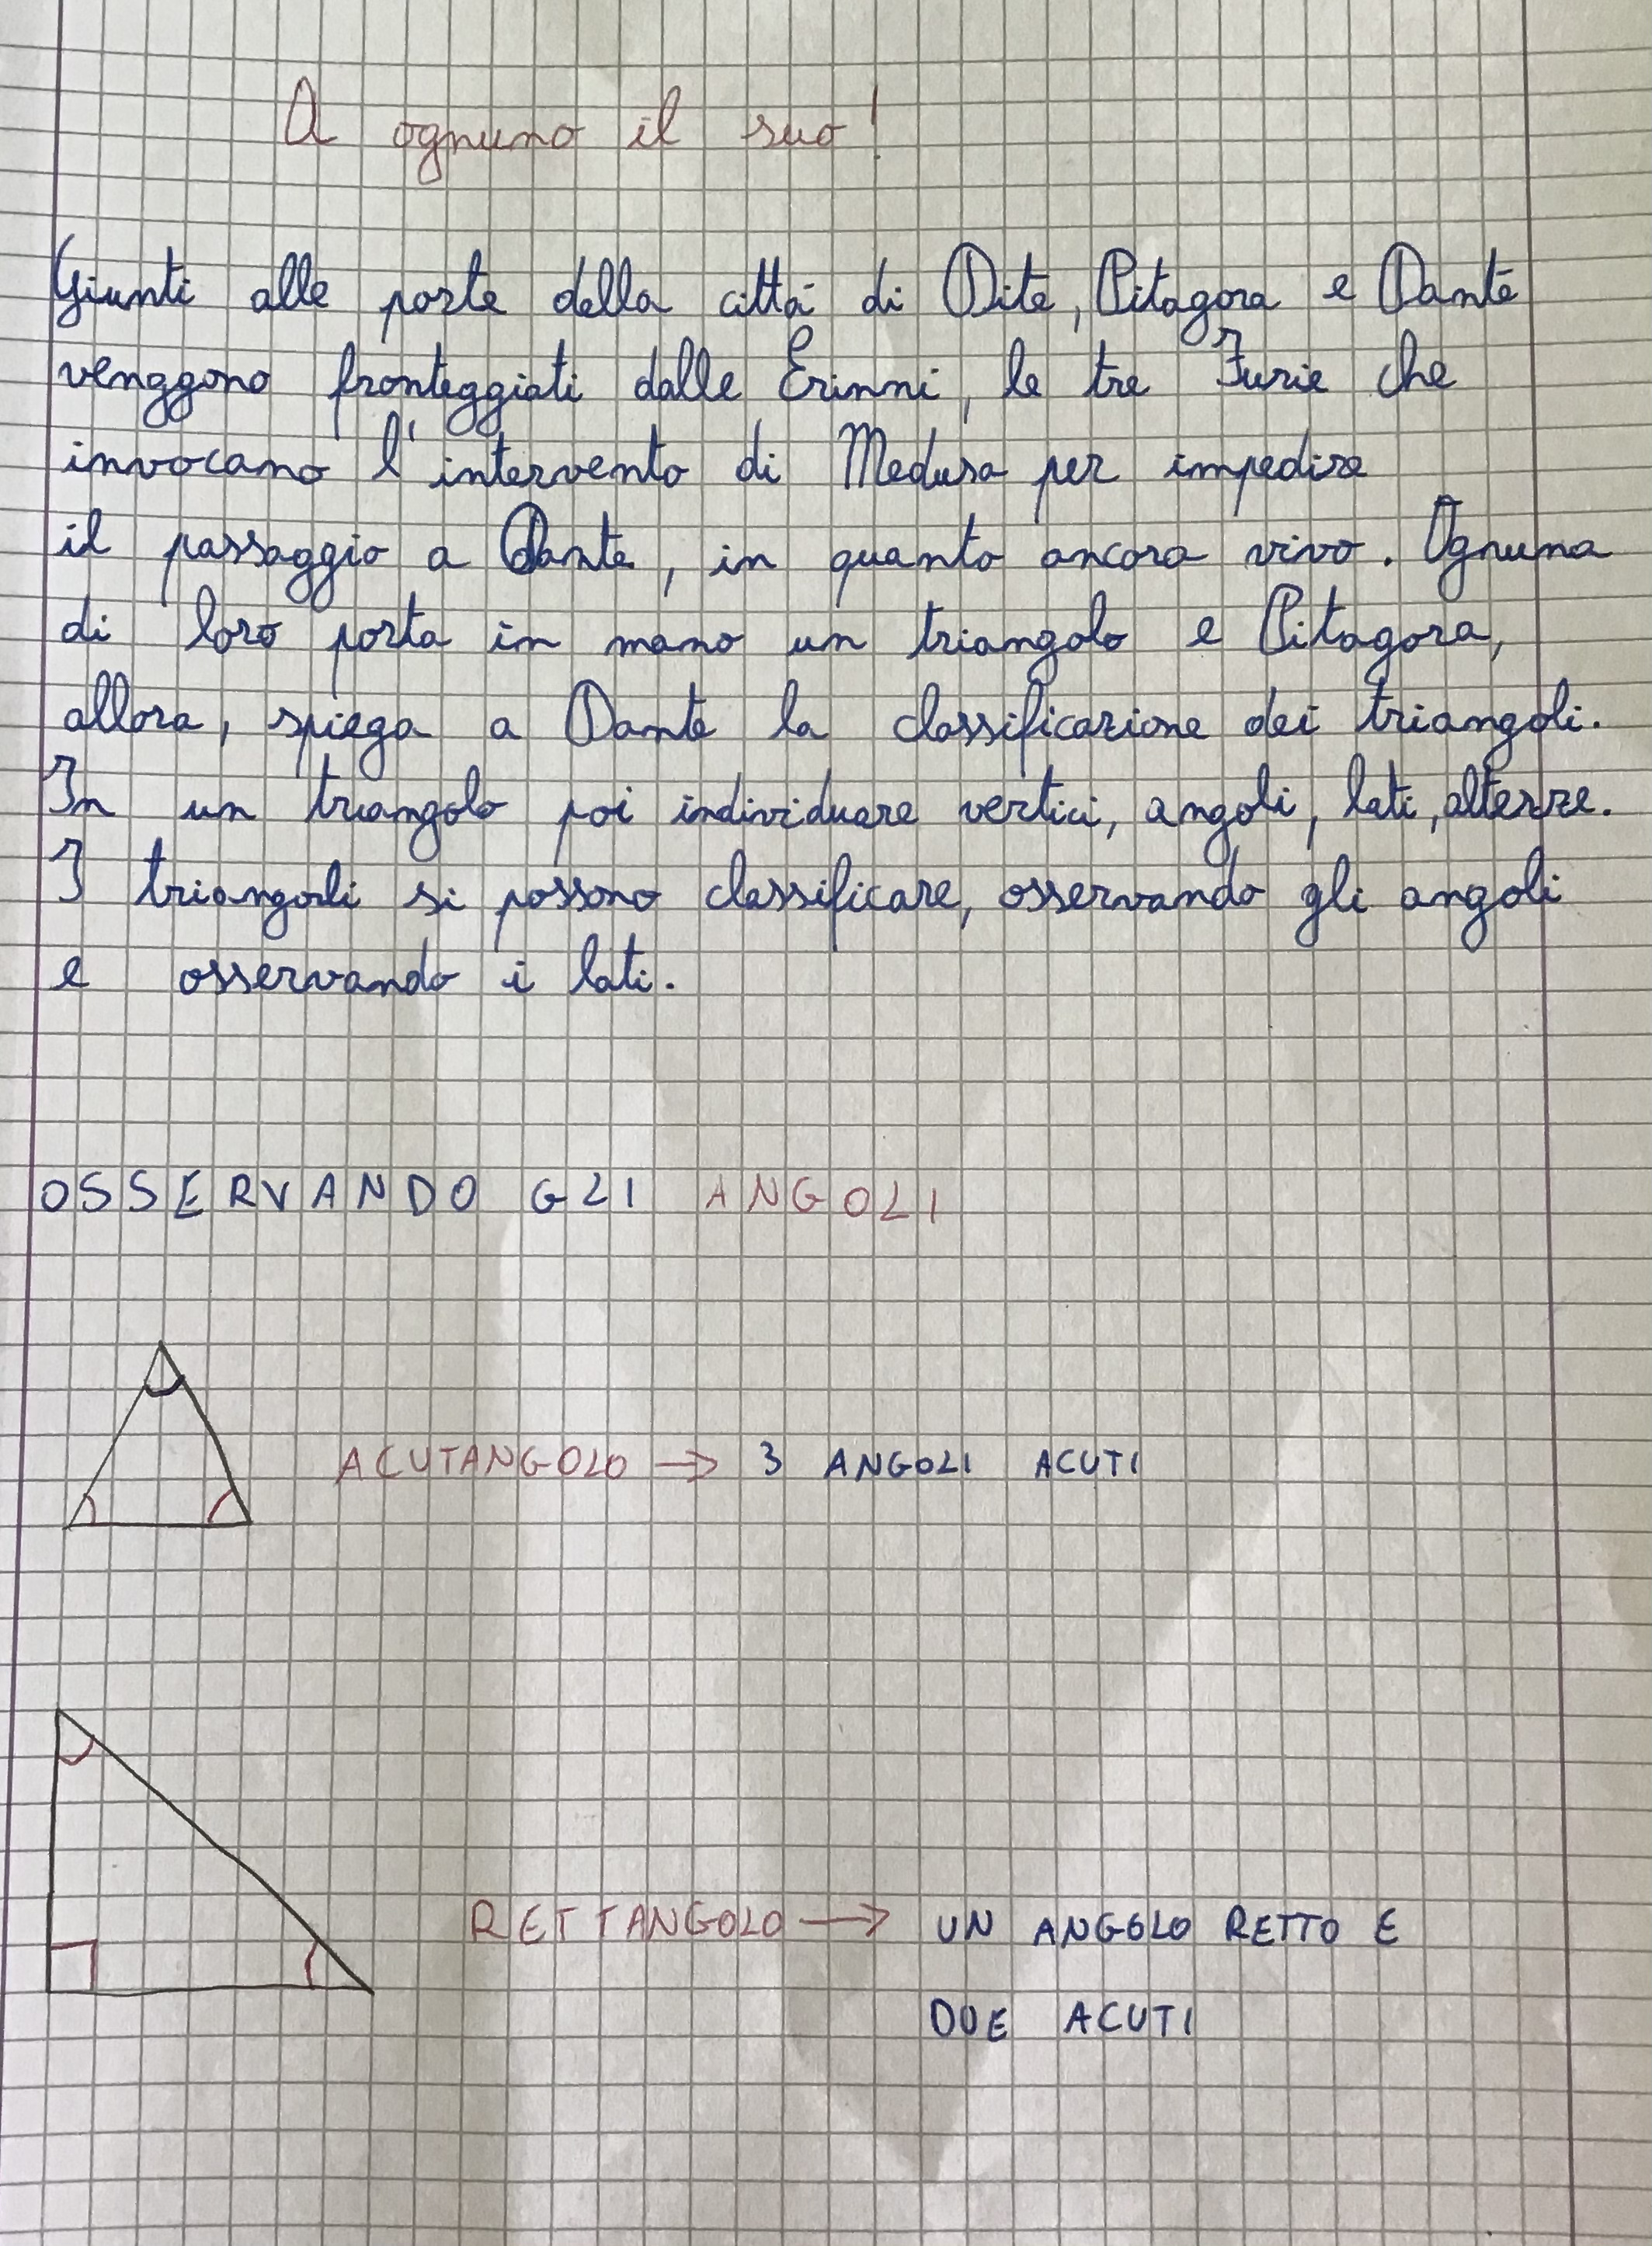 A ognuno il suo!
Giunti alle porte della città di Dite, Pitagora e Dante
venggono fronteggiati dalle Erinni, le tre Furie che
invocano l'intervento di Medusa per impedire
il passaggio a Dante, in quanto ancora vivo. Ognuna
di loro porta in mano un triangolo e Pitagora,
allora, spiega a Dante la classificazione dei triangoli.
In un triangolo poi individuare vertici, angoli, lati, altezze.
I triangoli si possono classificare, osservando gli angoli
e osservando i lati.
OSSERVANDO GLI ANGOLI
ACUTANGOLO → 3 ANGOLI ACUTI
RETTANGOLO → UN ANGOLO RETTO E
DUE ACUTI